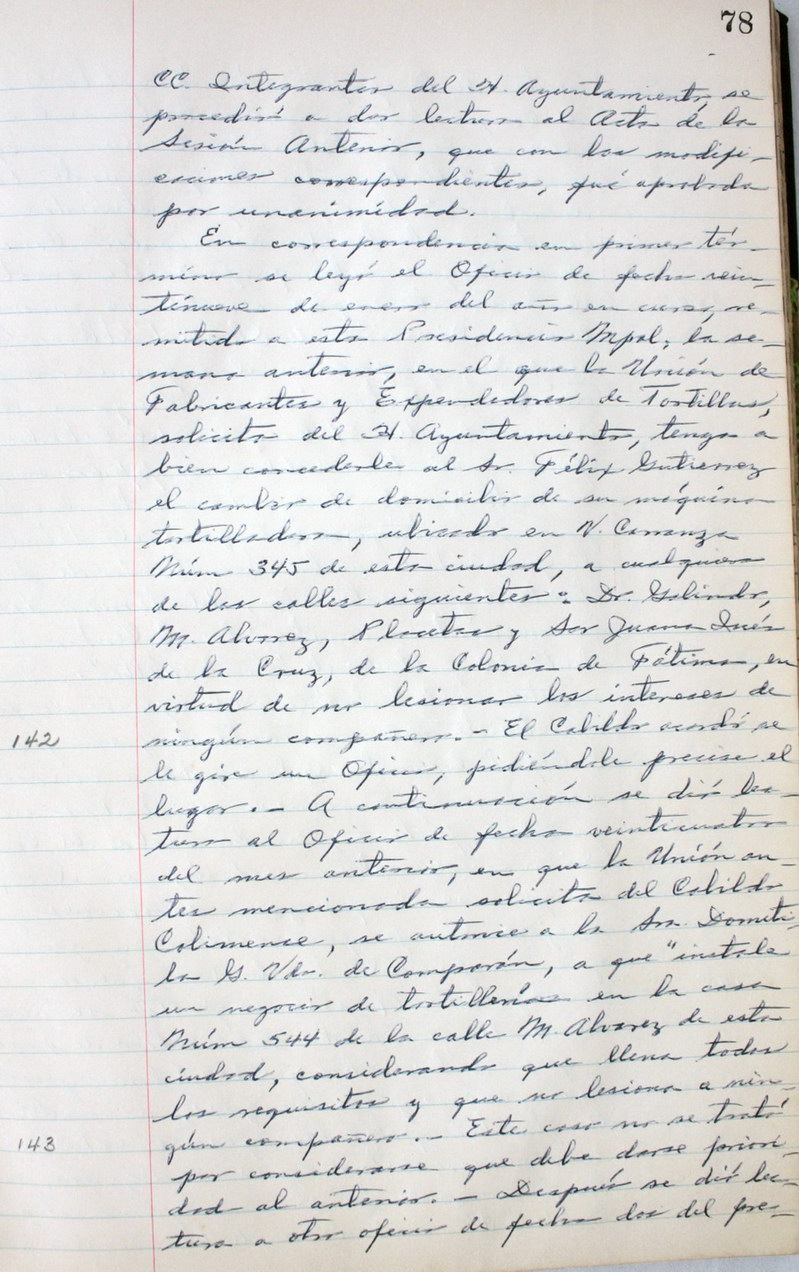 78
CC. Integrantes del H. Ayuntamiento, se
procedió a dar lectura al Acta de la
Sesión Anterior, que con las modifi-
caciones correspondientes, fué aprobada
por unanimidad.
En correspondencia en primer tér-
mino se leyó el Oficio de fecha vein-
tinueve de enero del año en curso, re-
mitido a esta Presidencia Mpal, la se-
mana anterior, en el que la Unión de
Fabricantes y Expendedores de Tortillas,
solicita del H. Ayuntamiento, tenga a
bien concederle al Sr. Félix Gutierrez
el cambio de domicilio de su máquina
tortilladora, ubicada en V. Carranza
Núm 345 de esta ciudad, a cualquiera
de las calles siguientes: Dr. Galindo,
M. Alvarez, Placetas y Sor Juana Inés
de la Cruz, de la Colonia de Fátima, en
virtud de no lesionar los intereses de
142 ningún compañero.- El Cabildo acordó se
le gire un Oficio, pidiéndole precise el
lugar.- A continuación se dió lec-
tura al Oficio de fecha veinticuatro
del mes anterior, en que la Unión an-
tes mencionada solicita del Cabildo
Colimense, se autorice a la Sra. Domiti-
la G. Vda. de Comparán, a que "instale
un negocio de tortillería en la casa
Núm 544 de la calle M. Alvarez de esta
ciudad, considerando que llena todos
los requisitos y que no lesiona a nin-
143 gún compañero.- Este caso no se trató
por considerarse que debe darse priori-
dad al anterior.- Después se dió lec-
tura a otro oficio de fecha dos del pre-